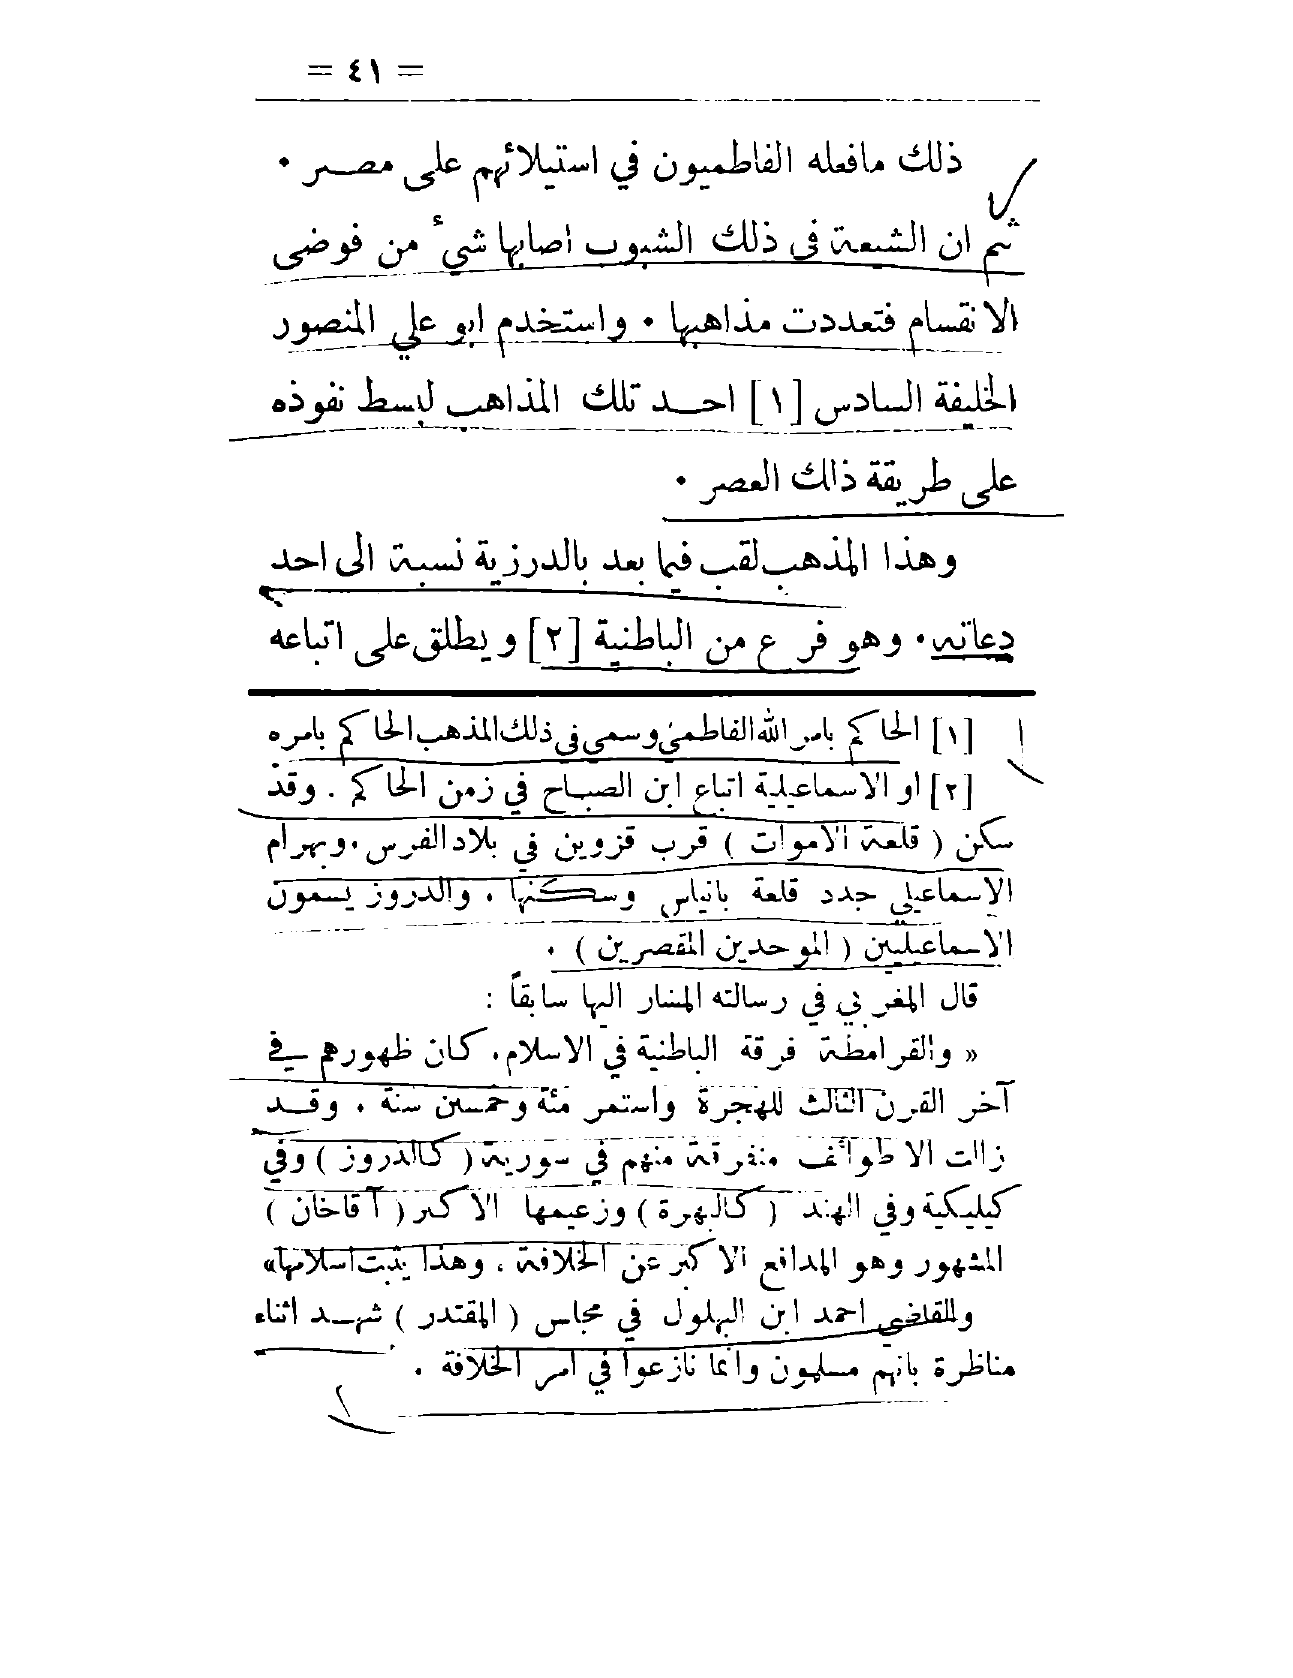 = ٤١ =
ذلك مافعله الفاطميون في استيلائهم على مصر ٠
ثم ان الشيعة في ذلك الشبوب اصابها شيء من فوضى
الانقسام فتعددت مذاهبها ٠ واستخدم ابو علي المنصور
الخليفة السادس [١] احد تلك المذاهب لبسط نفوذه
على طريقة ذلك العصر ٠
وهذا المذهب لقب فيما بعد بالدرزية نسبة الى احد
دعاته ٠ وهو فرع من الباطنية [٢] ويطلق على اتباعه
[١] الحاكم بامر الله الفاطمي وسمي في ذلك المذهب الحاكم بامره
[٢] او الاسماعيلية اتباع ابن الصباح في زمن الحاكم . وقد
سكن ( قلعة الاموات ) قرب قزوين في بلاد الفرس . وبهرام
الاسماعيلي جدد قلعة بانياس وسكنها . والدروز يسمون
الاسماعيليين ( الموحدين المقصرين ) .
قال المغربي في رسالته المشار اليها سابقاً :
« والقرامطة فرقة الباطنية في الاسلام . كان ظهورهم في
آخر القرن الثالث للهجرة واستمر مئة وخمسين سنة . وقد
زالت الا طوائف متفرقة منهم في سورية ( كالدروز ) وفي
كيليكية وفي الهند ( كالبهرة ) وزعيمها الاكبر ( آقاخان )
المشهور وهو المدافع الاكبر عن الخلافة . وهذا يثبت اسلامها»
وللقاضي احمد ابن البهلول في مجلس ( المقتدر ) شهد اثناء
مناظرة بانهم مسلمون وانما نازعوا في امر الخلافة .